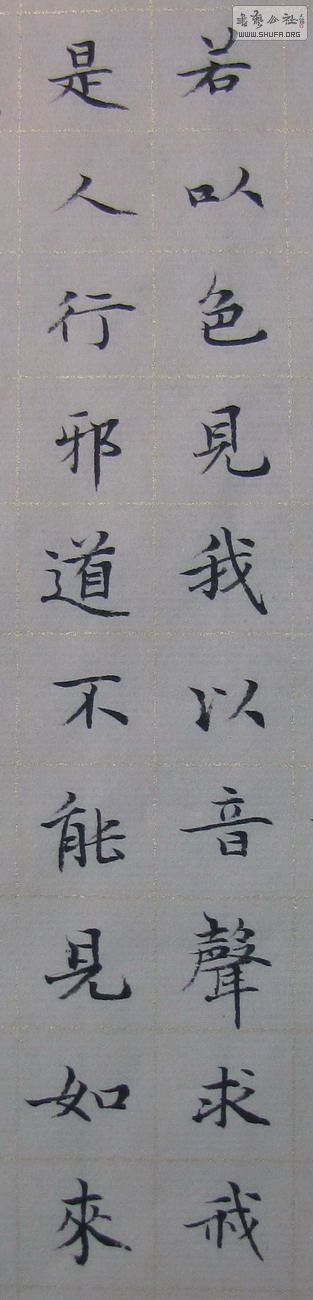 書藝公社
WWW.SHUFA.ORG
若以色見我以音聲求我
是人行邪道不能見如來